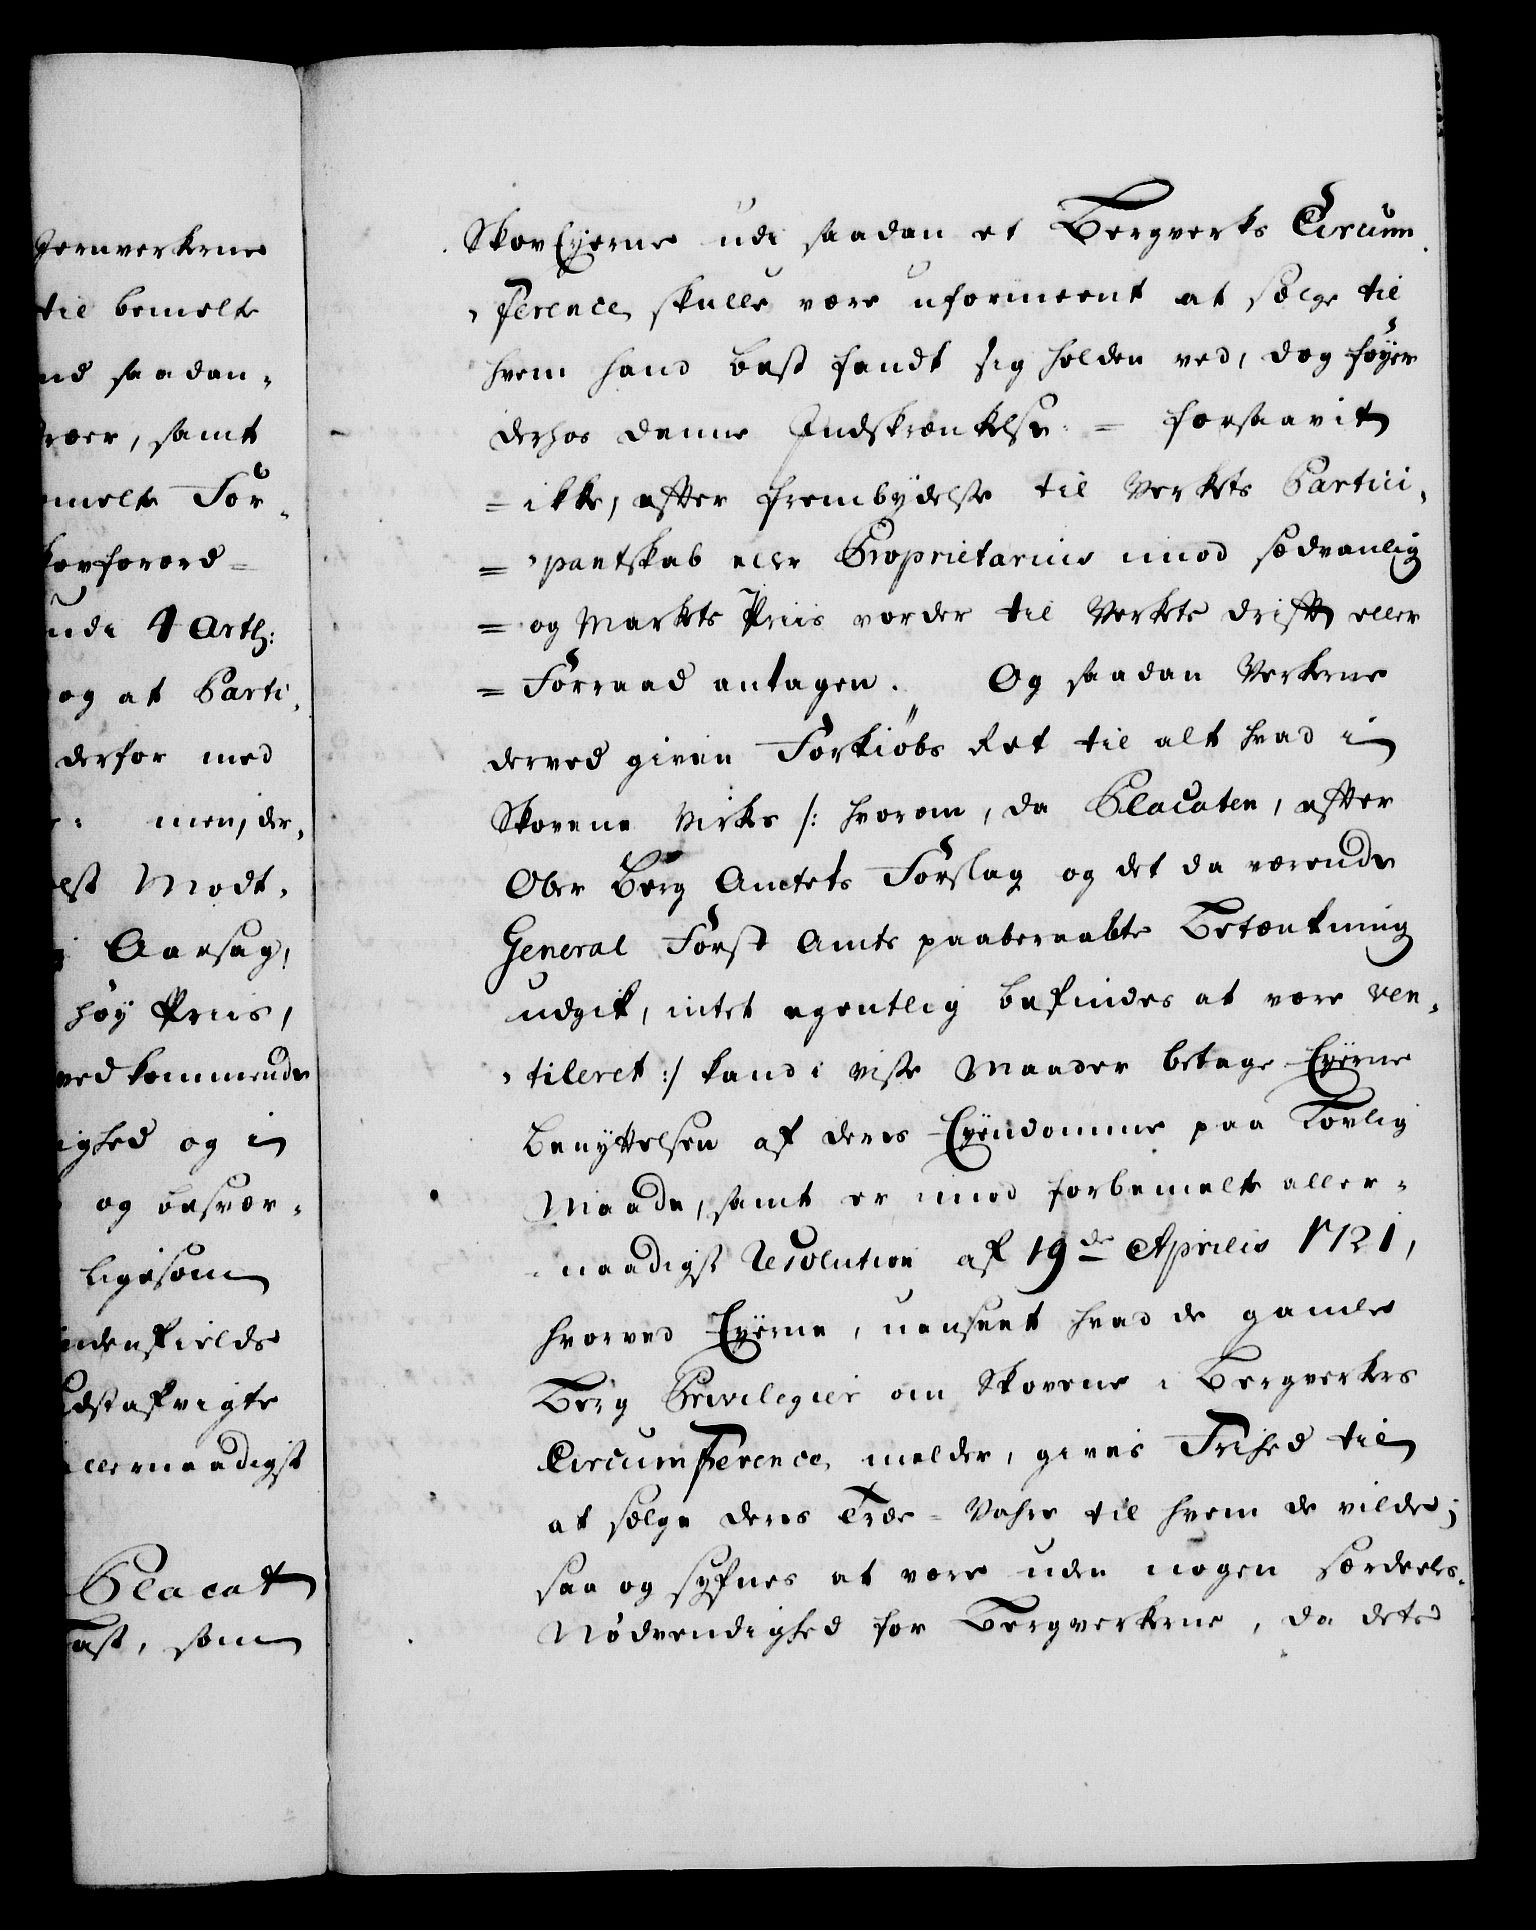 Jernverkerne
til bemelte
nd saadan-
ræer, samt
melte For-
kovforord=
udi 4 Arth:
og at Parti-
derfor med
men, der-
elst Modt-
Aarsag,
høy Priis,
vedkommende
ighed og i
og besvær-
ligesom
indenfields
idstafvigte
allernaadigst
Placat
ast, som
SkovEyerne udi saadan et Bergverks Circum
-ference, skulle være uformeent at sælge til
hvem hand best fandt sig holden ved, dog føyer
derhos denne Indskrænkelse: = forsaavit
= ikke, efter frembydelse til Verkets Partici-
= -pantskab eller Proprietarius imod sædvanlig
= og Markets Priis vorder til Verkets drift eller
= Forraad antagen. Og saadan Verkerne
derved given Forkiöbs Ret til alt hvad i
Skovene Virkes /: hvorom, da Placaten, efter
Ober Berg Amtets Forslag og det da værende
General Forst Amts paaberaabte Betænkning
udgik, intet egentlig befindes at være ven-
-tileret :/ kand i visse Maader betage Eyerne
Benyttelsen af deres Eyendomme paa Lovlig
Maade, samt er imod forbemelte aller-
naadigst Resolution af 19de Aprilis 1721,
hvorved Eyerne, uanseet hvad de gamle
Berg Privilegier om Skovene i Bergverkers
Circumference, melder, gives Frihed til
at sælge deres Træe-Vahre til hvem de vilde;
saa og syfnes at være uden nogen særdeels
Nødvendighed for Bergverkerne, da dets